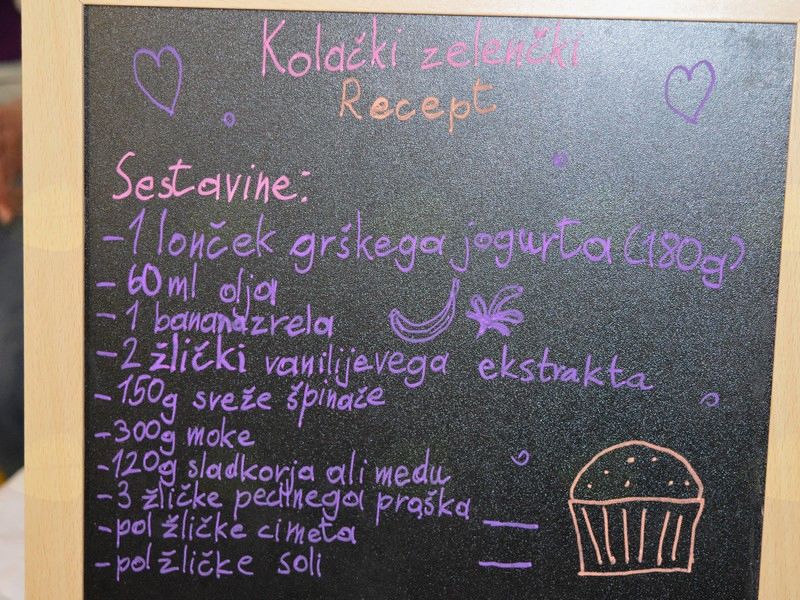 Kolački zelenčki
Recept
Sestavine:
-1 lonček grškega jogurta (180g)
-60ml olja
-1 banana zrela
-2 žlički vanilijevega ekstrakta
-150g sveže špinače
-300g moke
-120g sladkorja ali medu
-3 žličke pecilnega praška
-pol žličke cimeta
-pol žličke soli